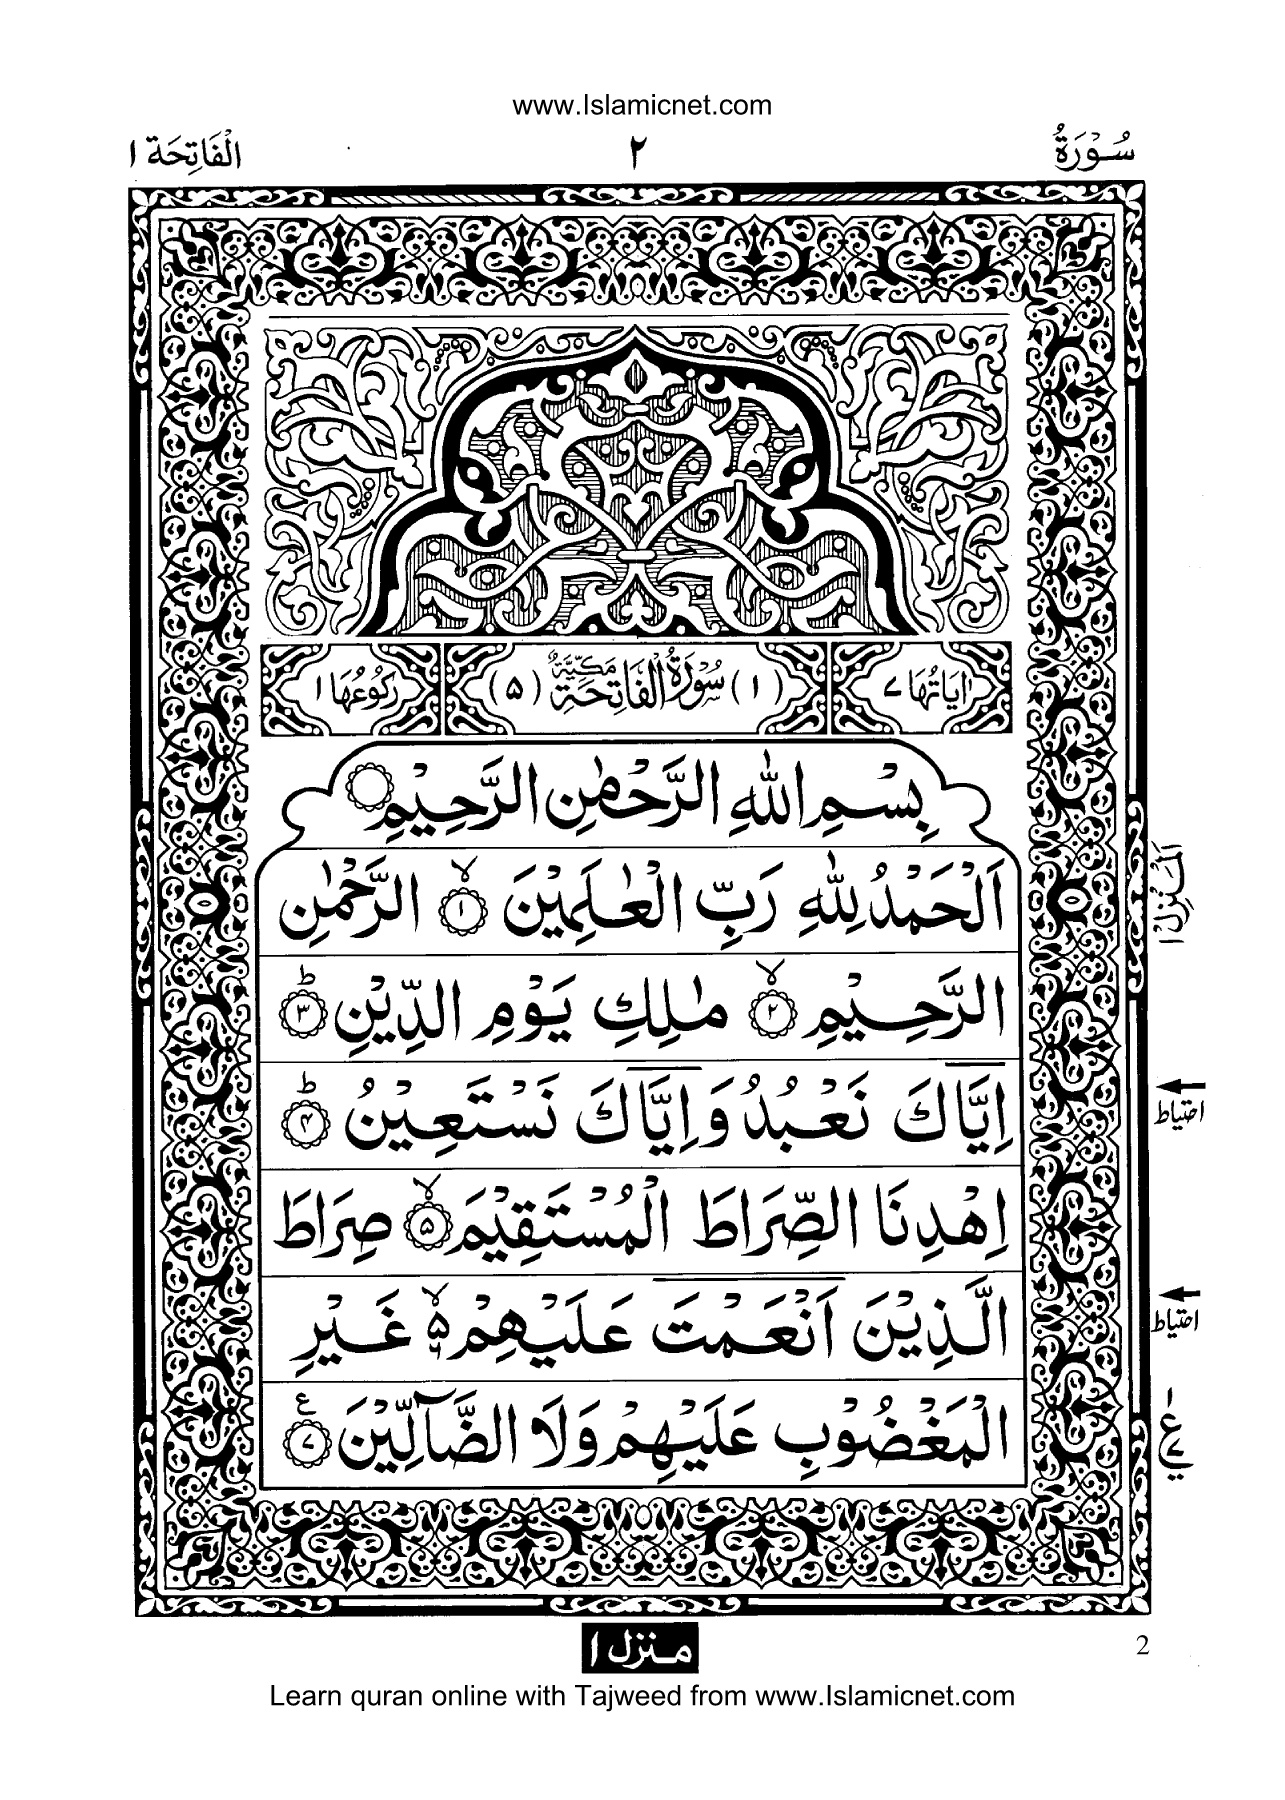 www.Islamicnet.com
سُوْرَةُ ٢ الْفَاتِحَة ١
اٰيَاتُهَا ٧ (١) سُوْرَةُ الْفَاتِحَةِ مَكِّيَّةٌ (٥) رُكُوْعُهَا ١
بِسْمِ اللّٰهِ الرَّحْمٰنِ الرَّحِيْمِ
اَلْحَمْدُ لِلّٰهِ رَبِّ الْعٰلَمِيْنَ ۙ‏﴿١﴾ الرَّحْمٰنِ
الرَّحِيْمِ ۙ‏﴿٢﴾ مٰلِكِ يَوْمِ الدِّيْنِ ؕ‏﴿٣﴾
اِيَّاكَ نَعْبُدُ وَاِيَّاكَ نَسْتَعِيْنُ ؕ‏﴿٤﴾
اِهْدِنَا الصِّرَاطَ الْمُسْتَقِيْمَ ۙ‏﴿٥﴾ صِرَاطَ
الَّذِيْنَ اَنْعَمْتَ عَلَيْهِمْ ۙ۬ۦ غَيْرِ
الْمَغْضُوْبِ عَلَيْهِمْ وَلَا الضَّآلِّيْنَ ‏﴿٧﴾ ع
اَلْمَنْزِل ١
احتياط
احتياط
ع
منزل ١
2
Learn quran online with Tajweed from www.Islamicnet.com